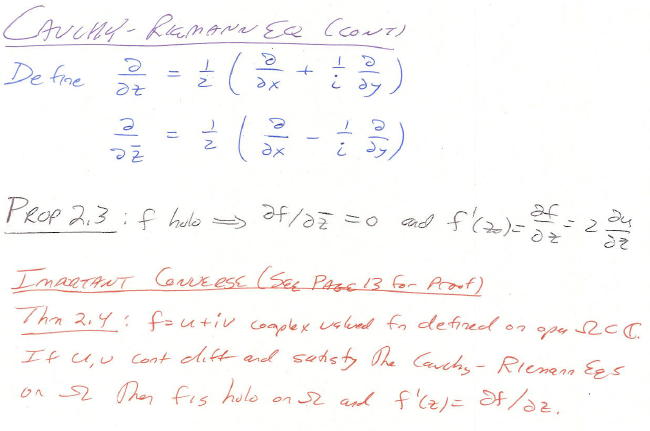 CAUCHY-RIEMANN EQ (CONT)
Define ∂/∂z = 1/2 ( ∂/∂x + 1/i ∂/∂y )
∂/∂z̄ = 1/2 ( ∂/∂x - 1/i ∂/∂y )
PROP 2.3 : f holo ⟹ ∂f/∂z̄ = 0 and f'(z₀) = ∂f/∂z = 2 ∂u/∂z
IMPORTANT CONVERSE (SEE PAGE 13 for Proof)
Thm 2.4 : f=u+iv complex valued fn defined on open Ω⊂ℂ.
If u,v cont diff and satisfy The Cauchy-Riemann Eqs
on Ω Then f is holo on Ω and f'(z) = ∂f/∂z.